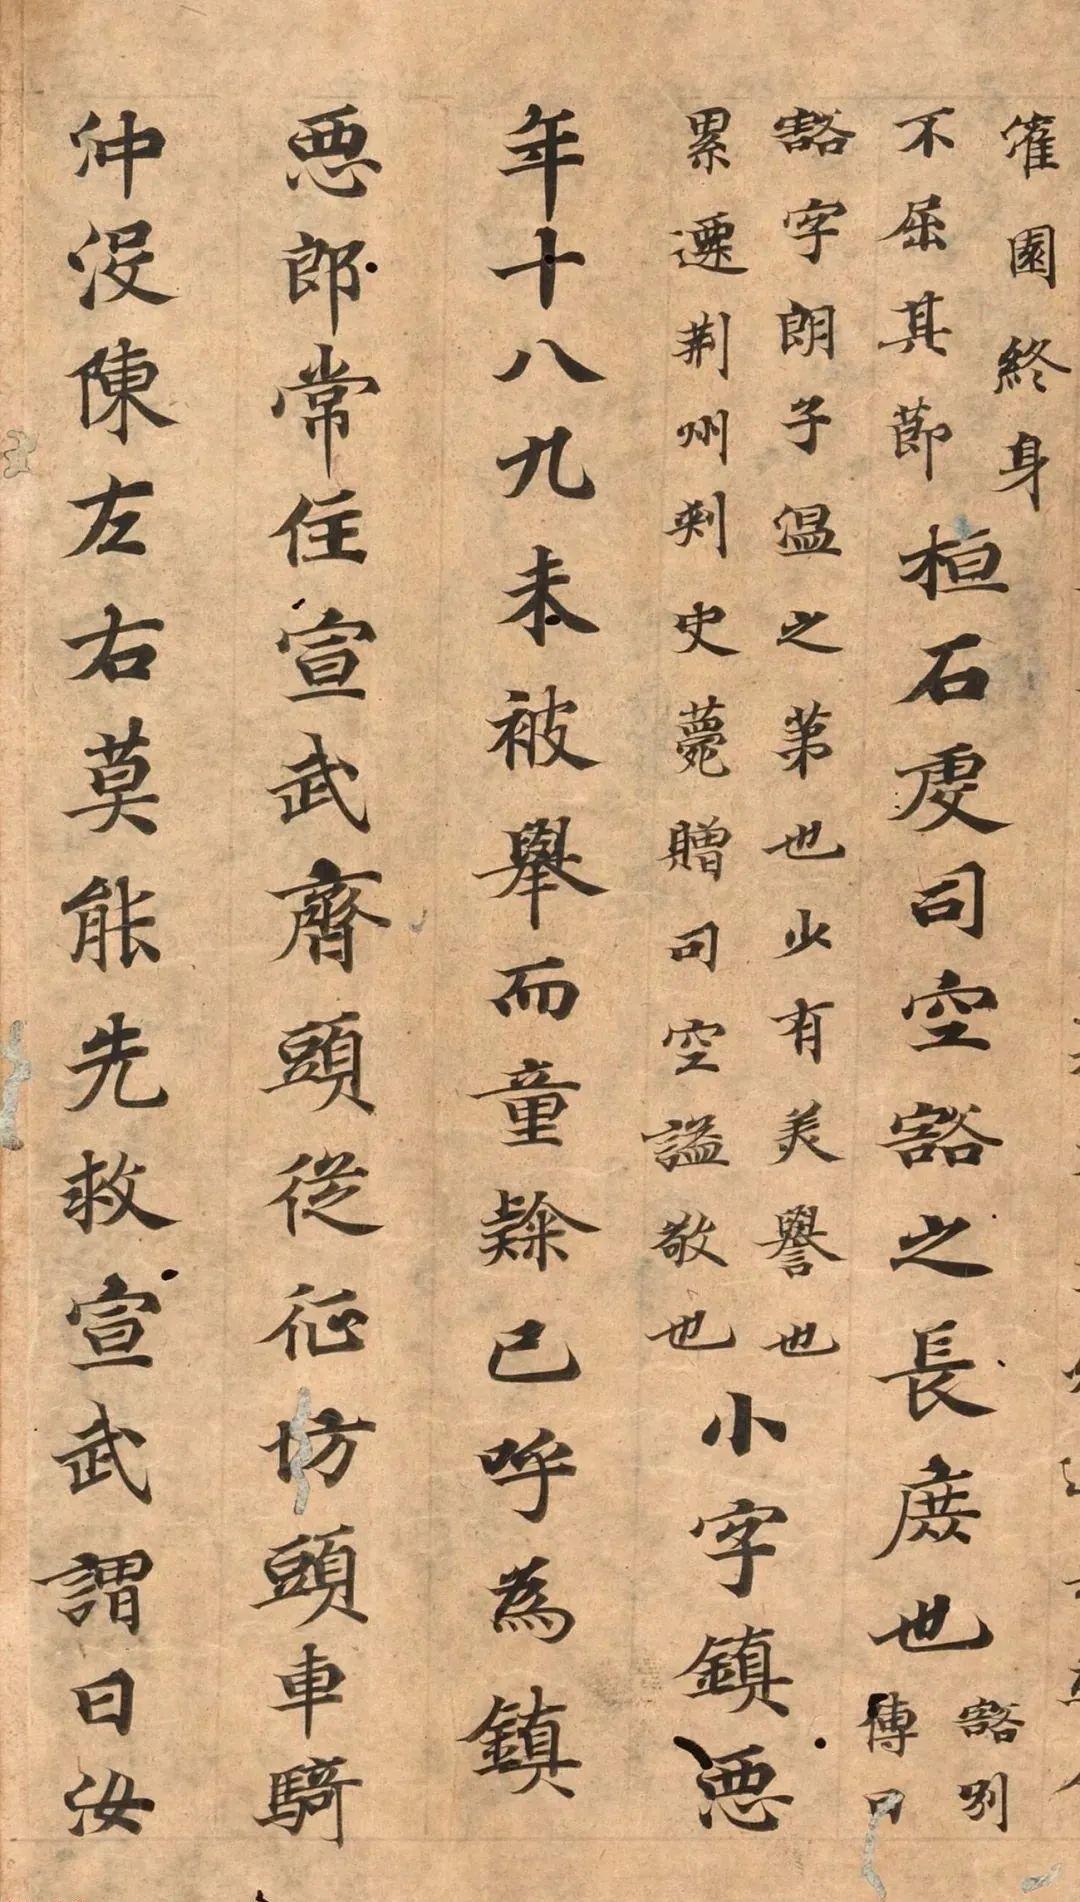 灌園終身
不屈其節
桓石虔司空豁之長庶也
豁別
傳曰
豁字朗子温之弟也少有美譽也
累遷荊州刺史薨贈司空謚敬也
小字鎮惡
年十八九未被舉而童隸已呼為鎮
惡郎常住宣武齋頭從征枋頭車騎
沖没陳左右莫能先救宣武謂曰汝